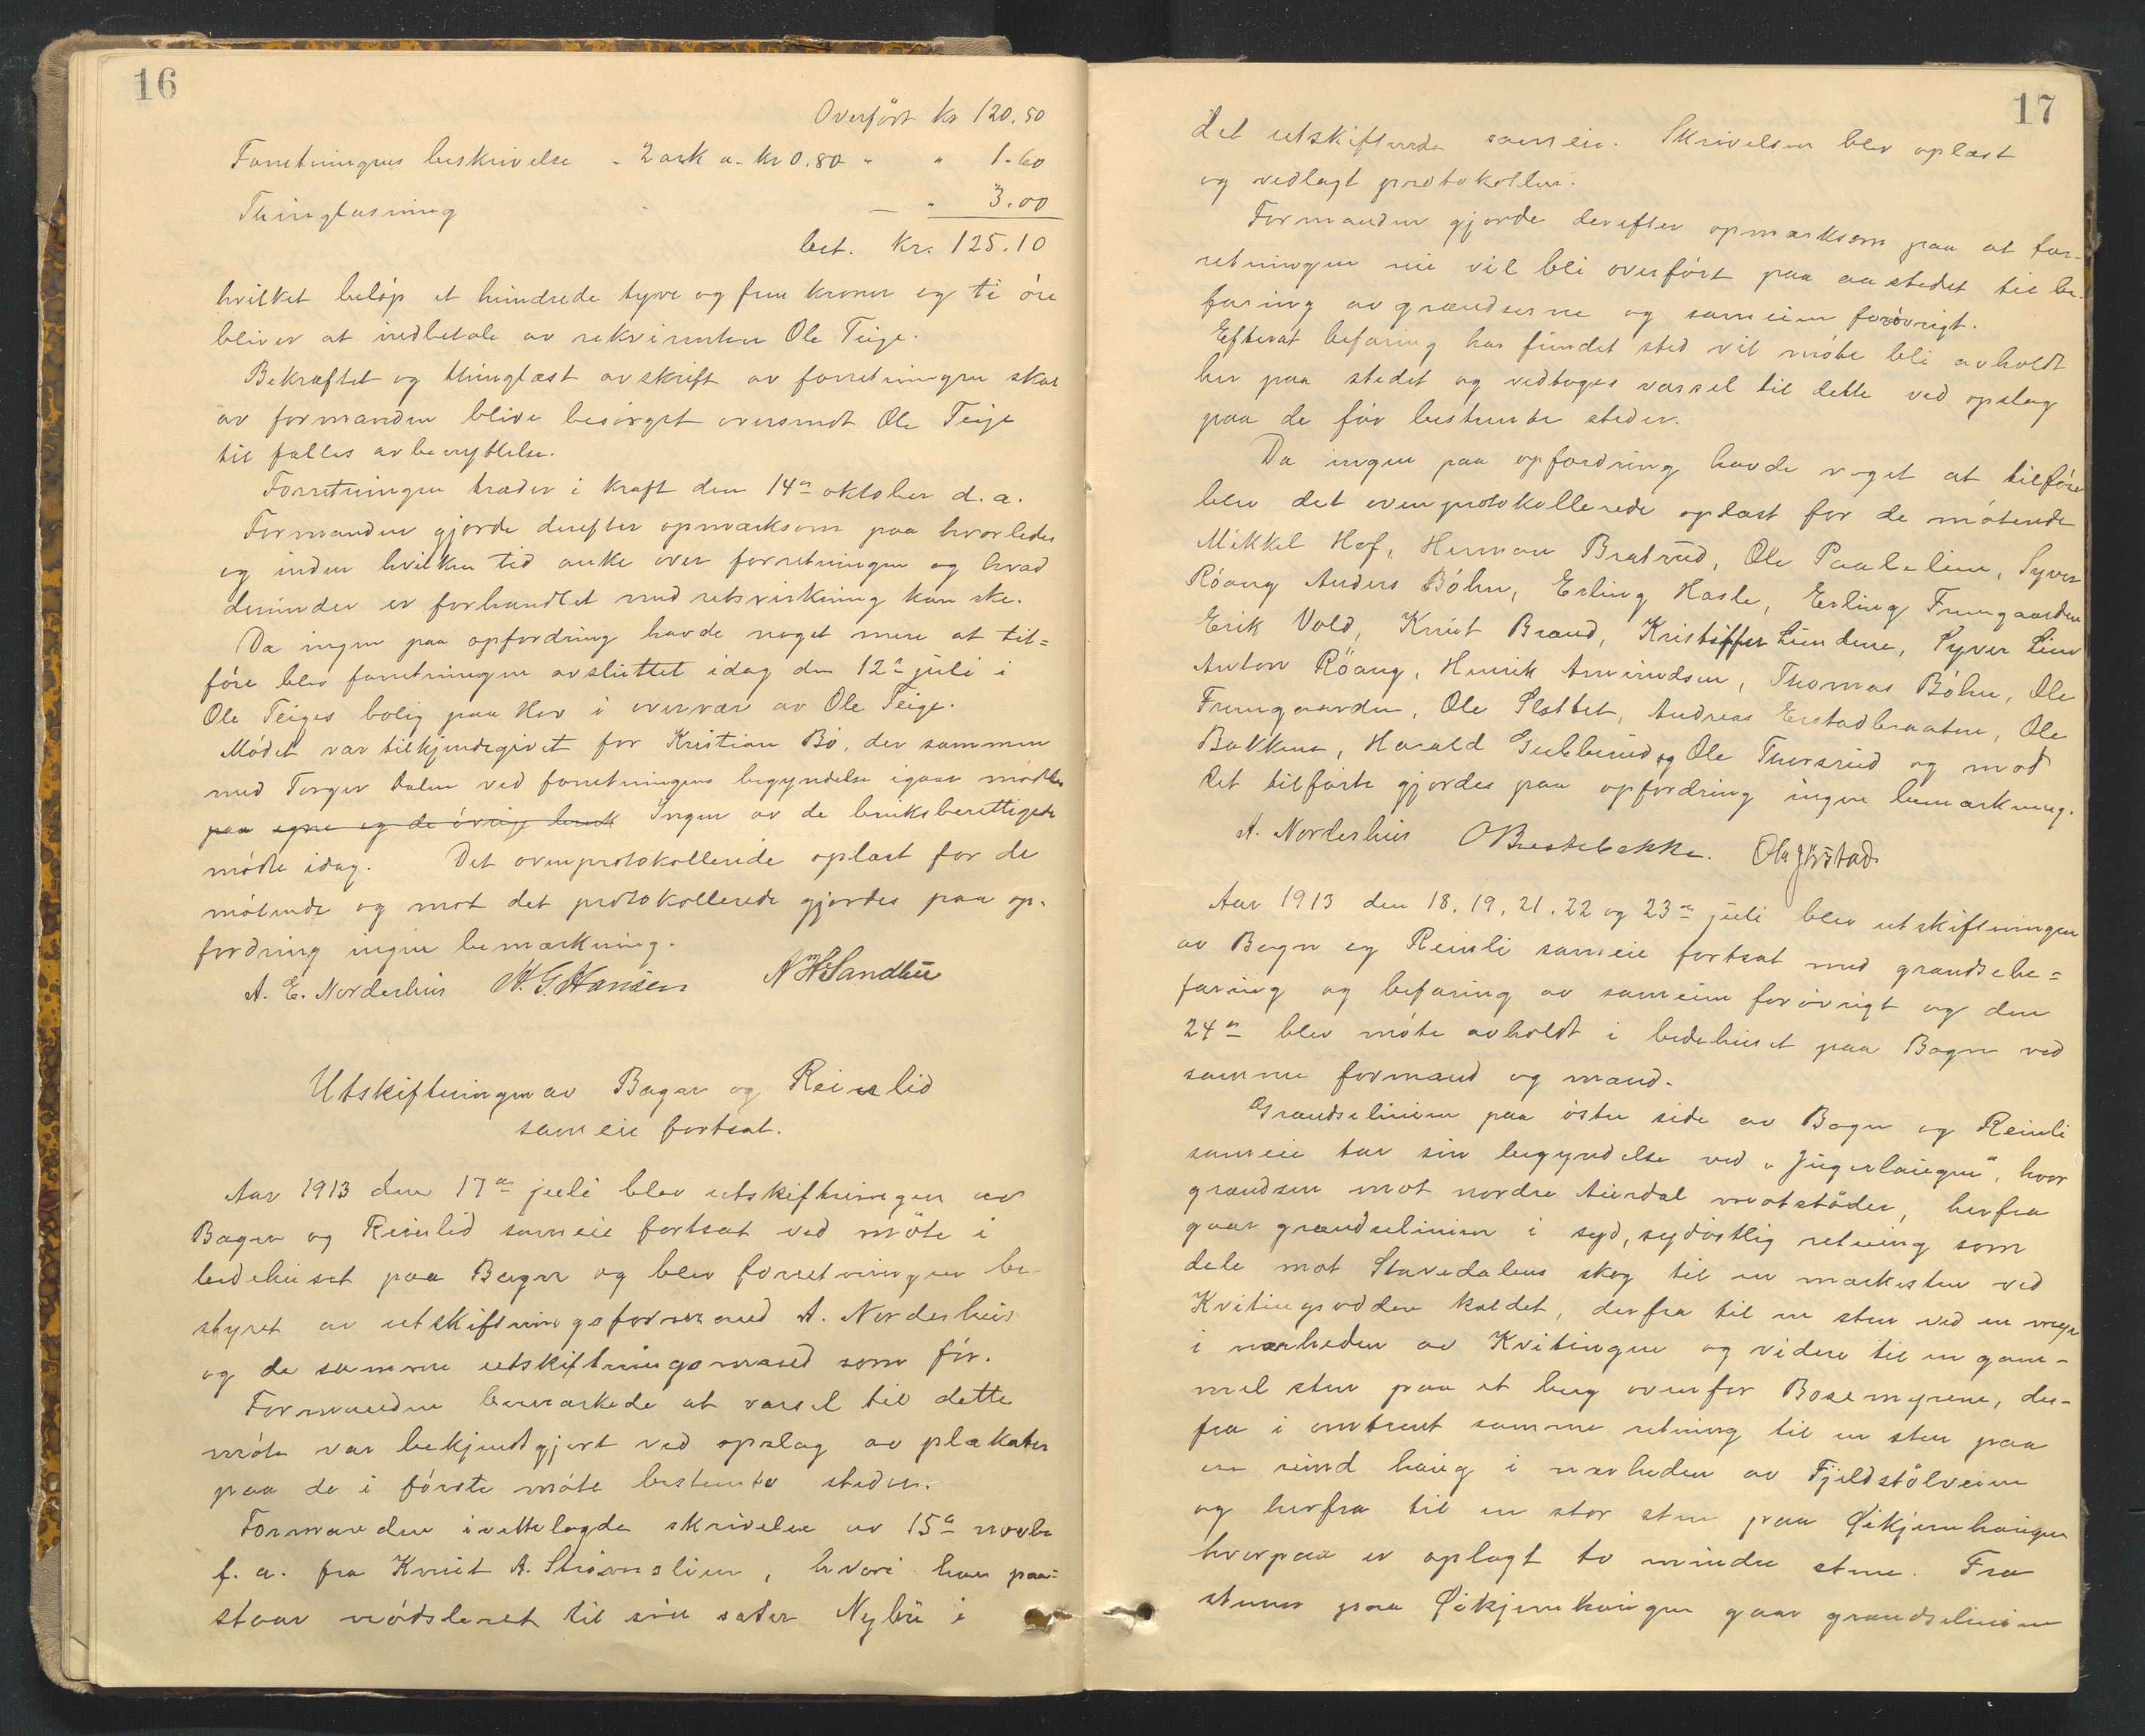 16
Overført kr 120.50
Forretningens beskrivelse - 2 ark a. kr 0.80 " " 1.60
Thinglæsning — " 3.00
let. kr. 125.10
hvilket beløp et hundrede tyve og fem kroner og ti øre
bliver at indbetale av rekvirenten Ole Teige.
Bekræftet og thinglæst avskrift av forretningen skal
av formanden blive besørget oversendt Ole Teige
til fælles avbenyttelse.
Forretningen træder i kraft den 14de oktober d. a.
Formanden gjorde derefter opmerksom paa hvorledes
og inden hvilken tid anke over forretningen og hvad
derunder er forhandlet med retsvirkning kan ske.
Da ingen paa opfordring havde noget mere at til=
føre blev forretningen avsluttet idag den 12te juli i
Ole Teiges bolig paa Hov i overvær av Ole Teige.
Mødet var tilkjendegivet for Kristian Bø, der sammen
med Torger Dalen ved forretningens begyndelse igaar mødte
paa egne og de øvrige bruk Ingen av de bruksberettigede
mødte idag. Det ovenprotokollerede oplæst for de
møtende og mot det protokollerede gjordes paa op-
fordring ingen bemærkning.
A. E. Norderhus H. G. Hansen N H Sandbu
Utskiftningen av Bagn og Reinlid
sameie fortsat.
Aar 1913 den 17de juli blev utskiftningen av
Bagn og Reinlid sameie fortsat ved møte i
bedehuset paa Bagn og blev forretningen be-
styret av utskiftningsformand A. Norderhus
og de samme utskiftningsmænd som før.
Formanden bemærkede at varsel til dette
møte var bekjendtgjort ved opslag av plakater
paa de i første møte bestemte steder.
Formanden ivettelagde skrivelse av 15de novbr
f. a. fra Knut A. Strømslien, hvori han paa=
staar utvist til sin sæter Nybu i
17
det utskiftende sameie. Skrivelsen blev oplæst
og vedlagt protokollen.
Formanden gjorde derefter opmærksom paa at for-
retningen nu vil bli overført paa aastedet til be-
faring av grændserne og sameiet forøvrigt.
Efterat befaring har fundet sted vil møte bli avholdt
her paa stedet og vedtoges varsel til dette ved opslag
paa de før bestemte steder.
Da ingen paa opfordring havde noget at tilføre
blev det ovenprotokollerede oplæst for de møtende
Mikkel Hof, Herman Bratrud, Ole Paalslien, Syver
Röang Anders Bøhn, Erling Hasle, Erling Fremgaarden
Erik Vold, Knut Brand, Kristoffer Lundene, Syver Lien
Anton Röang, Henrik Amundsen, Thomas Bøhn, Ole
Fremgaarden, Ole Slettet, Andreas Erstadbraaten, Ole
Bakken, Harald Gubberud og Ole Thorsrud og mod
det tilførte gjordes paa opfordring ingen bemærkning.
A. Norderhus O Brestebakke. Ole Jørstad
Aar 1913 den 18, 19, 21, 22 og 23de juli blev utskiftningen
av Bagn og Reinli sameie fortsat med grændsebe=
faring og befaring av sameiet forøvrigt og den
24de blev møte avholdt i bedehuset paa Bagn ved
samme formand og mænd.
Grændselinien paa østre side av Bagn og Reinli
sameie tar sin begyndelse ved "Jugerhaugen", hvor
grændsen mot nordre Aurdal motstøder, herfra
gaar grændselinien i syd, sydøstlig retning som
dele mot Stavedalens skog til en mærkesten ved
Kvitingsodden kaldet, derfra til en sten ved en myr
i nærheden av Kvitingen og videre til en gam-
mel sten paa et berg ovenfor Bosemyrene, der-
fra i omtrent samme retning til en sten paa
en rund haug i nærheden av Fjeldstølveien
og herfra til en stor sten paa Øikjernhaugen
hvorpaa er oplagt to mindre stene. Fra
stenen paa Øikjernhaugen gaar grændselinien